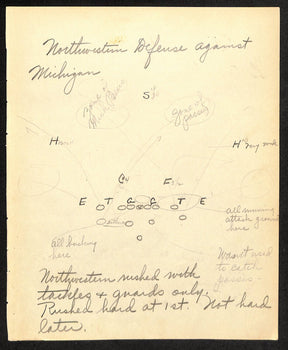 Northwestern Defense against
Michigan
S
zone of
zone of
passes
H
H
C
F
E T G G T E
all running
attack
here
all bucking
here
Wasn't used
to catch
passes -
Northwestern rushed with
tackles & guards only.
Rushed hard at 1st. Not hard
later.